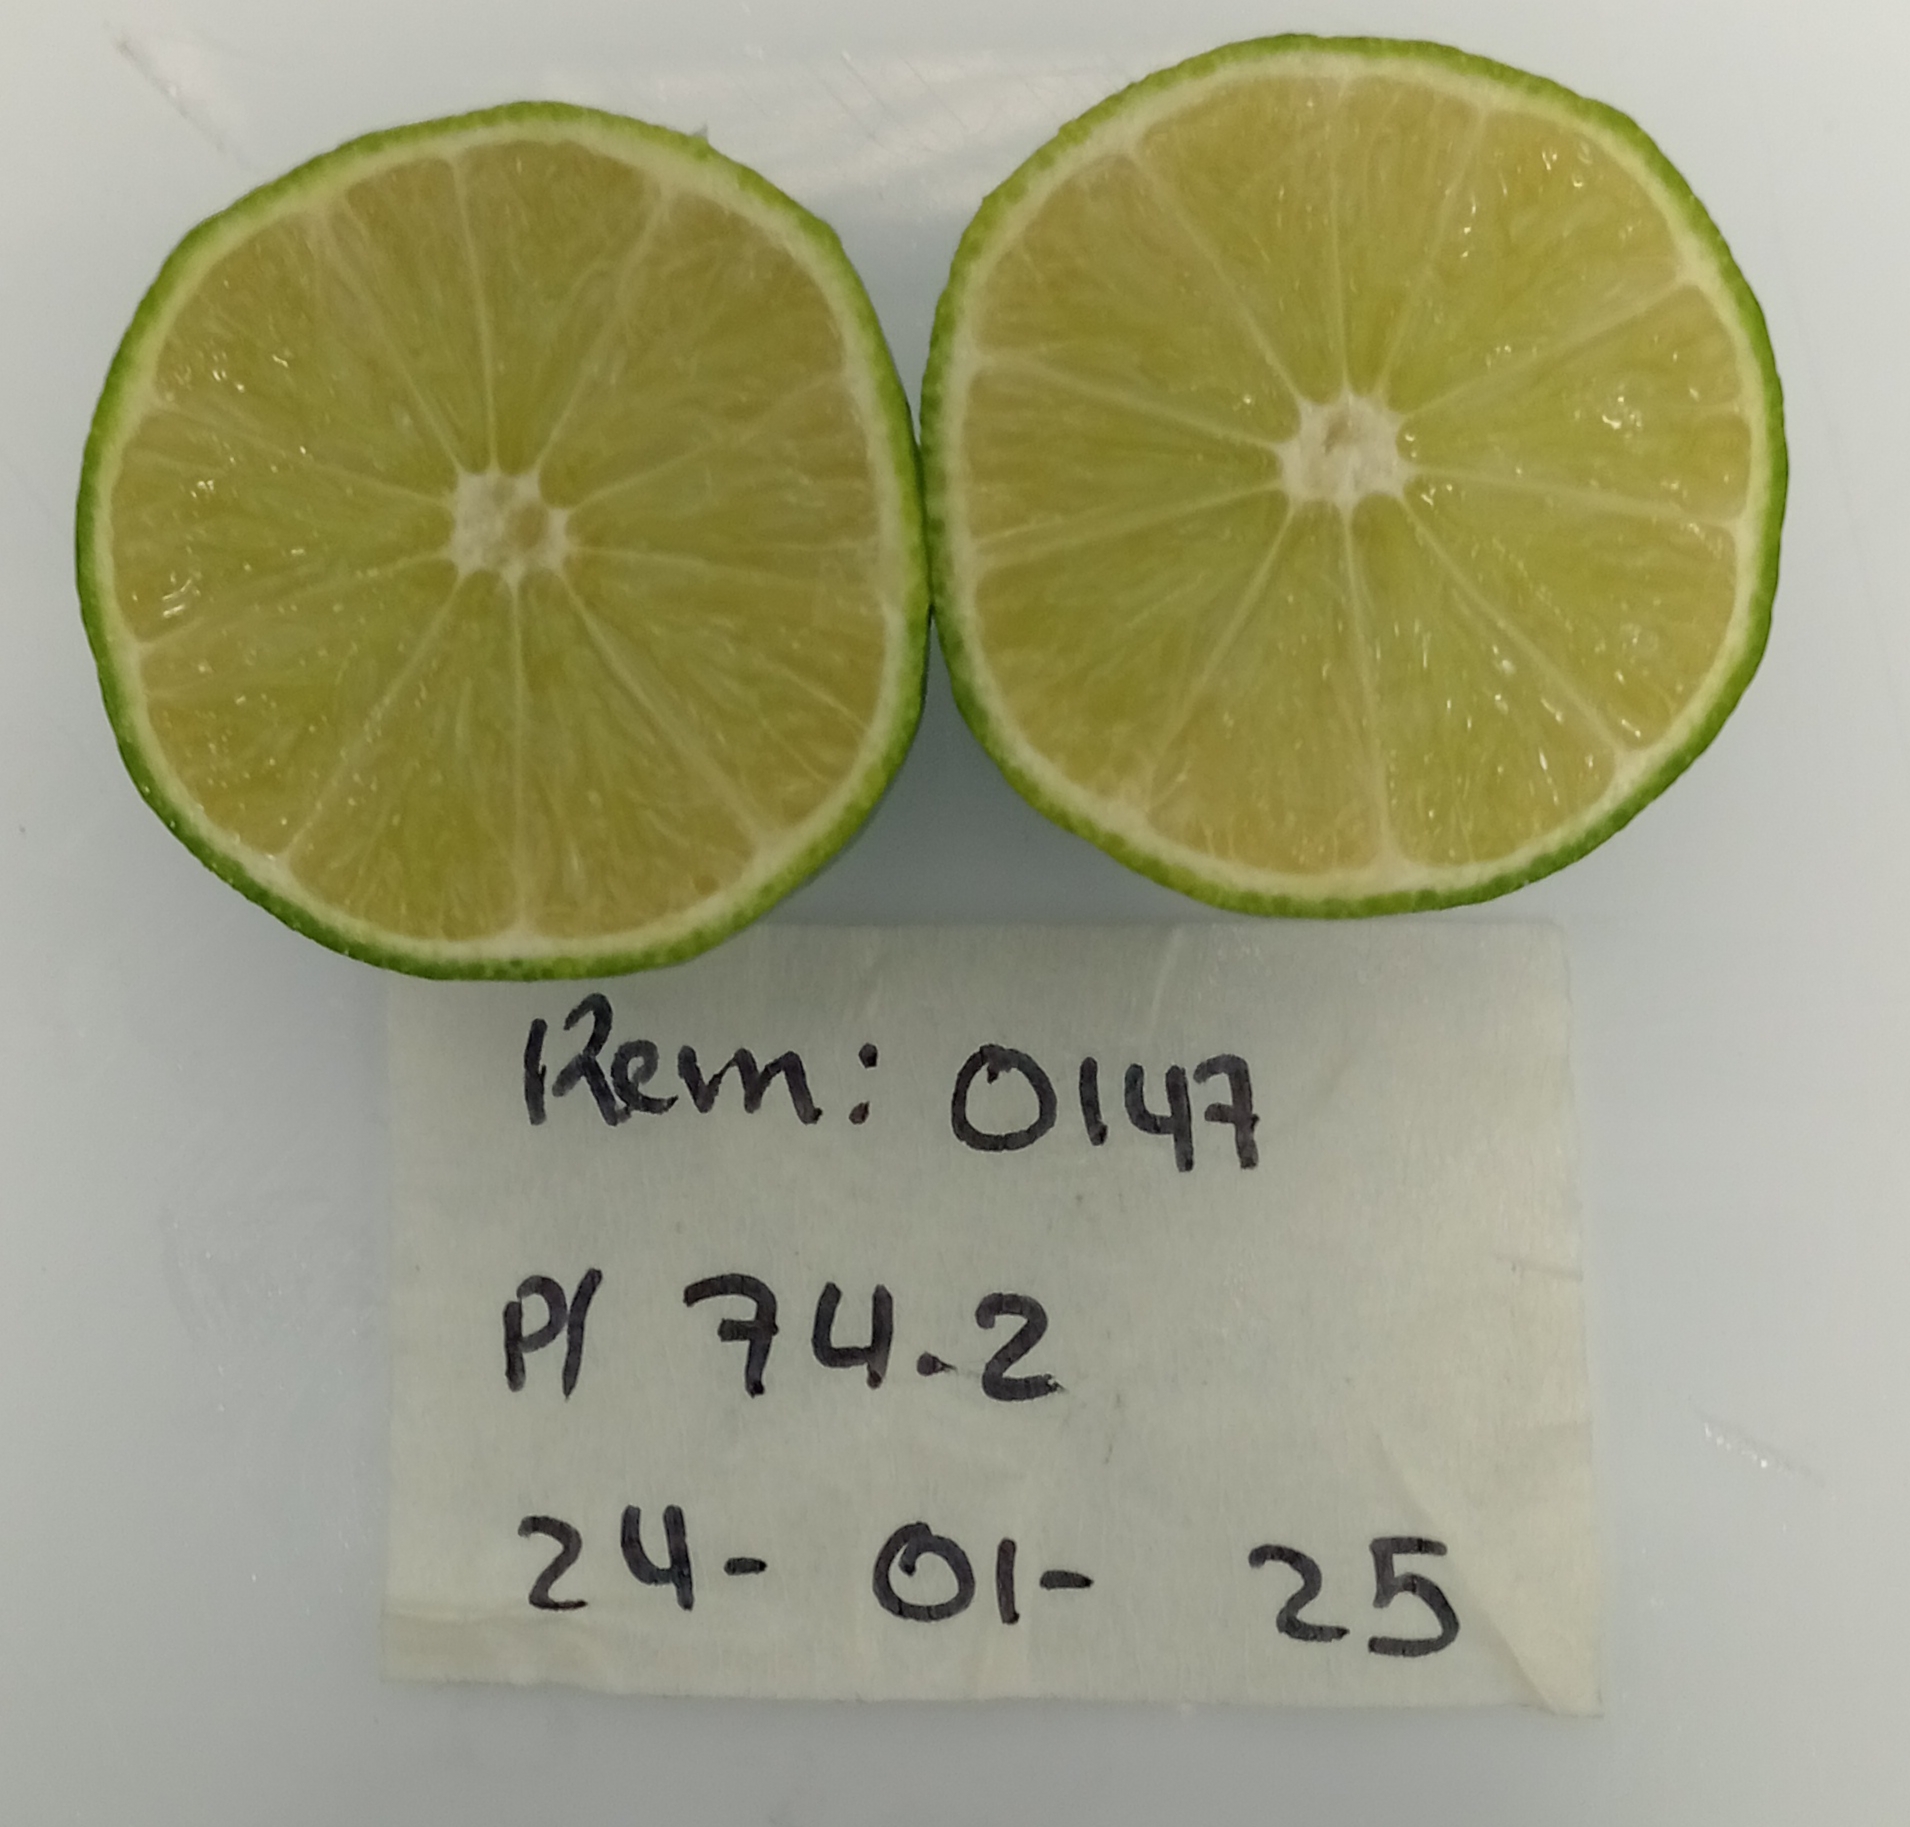 Rem: 0147
P/ 74.2
24- 01- 25